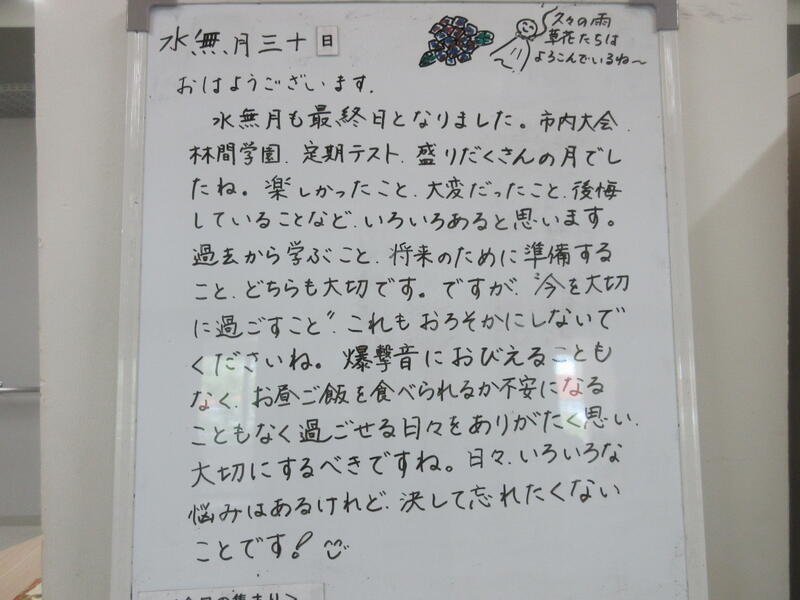 水無月三十日
久々の雨
草花たちは
よろこんでいるね～
おはようございます.
水無月も最終日となりました。市内大会.
林間学園.定期テスト.盛りだくさんの月でし
たね。楽しかったこと.大変だったこと.後悔
していることなど.いろいろあると思います。
過去から学ぶこと.将来のために準備する
こと.どちらも大切です。ですが.“今を大切
に過ごすこと”.これもおろそかにしないで
くださいね。爆撃音におびえることも
なく.お昼ご飯を食べられるか不安になる
こともなく過ごせる日々をありがたく思い.
大切にするべきですね。日々.いろいろな
悩みはあるけれど.決して忘れたくない
ことです!